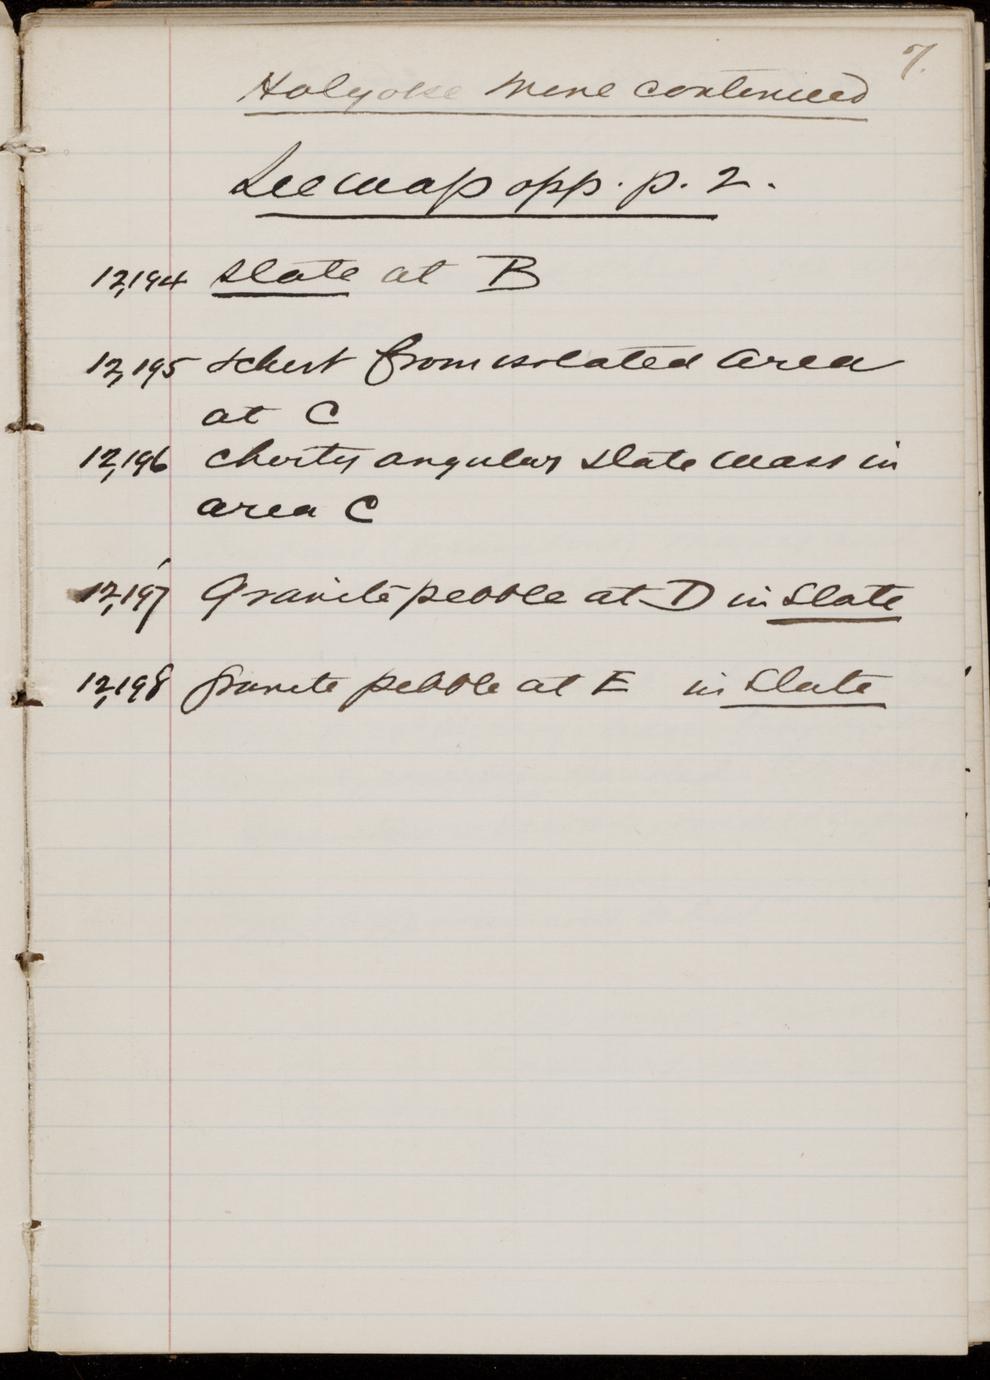 7.
Holyoke Mine continued
See map opp. p. 2.
12,194 Slate at B
12,195 Schist from isolated area
at C
12,196 cherty angular slate mass in
area C
12,197 Granite pebble at D in Slate
12,198 Granite pebble at E in Slate